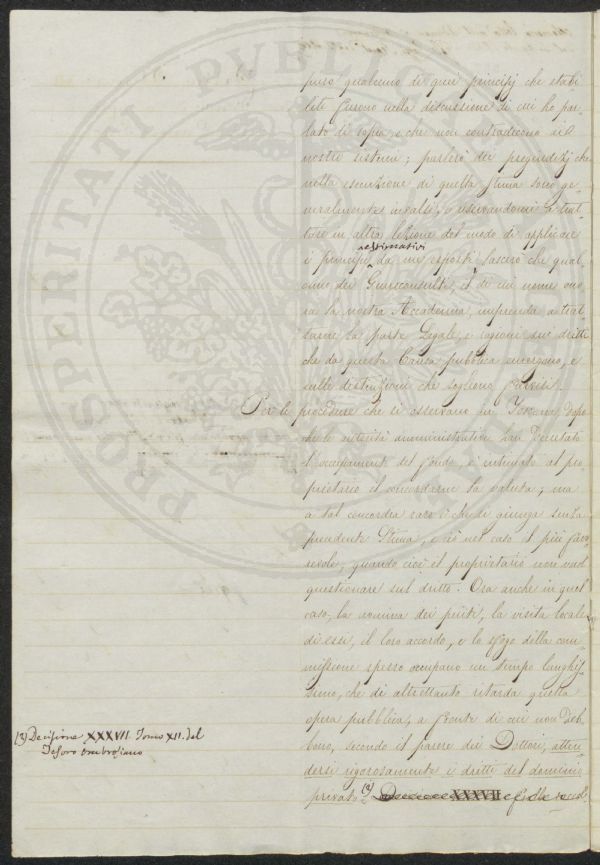 puso qualcuno di quei principj che stabi
liti furono nella discussione di cui ho par
lato di sopra, e che non contradicono al
nostro sistema; parlerò dei pregiudizj che
nella esecuzione di quella stima sono ge
neralmente invalsi, e riservandomi a trat
tare in altra lezione del modo di applicare
estimativi
i principj da me esposti lascerò che qual
cuno dei Giureconsulti, di cui nome ono
ra la nostra Accademia, imprenda a trat
tarne la parte Legale, e ragioni sui dritti
che da questa Causa pubblica emergono, e
sulle distinzioni che sogliono
Per le procedure che si osservano in Toscana dopo
che le autorità amministrative han Decretato
l'occupamento del fondo, è intimato al pro
prietario il concordarne la valuta; ma
a tal concordia raro è che si giunga senza
precedente Stima, e ciò nel caso il più favo
revole, quando cioè il proprietario non vuol
questionare sul dritto. Ora anche in quel
caso, la nomina dei periti, la visita locale
di essi, il loro accordo, e lo sfogo della com
missione spesso occupano un tempo lunghis
simo, che di altrettanto ritarda quella
opera pubblica, a fronte di cui non Deb
bono, secondo il parere dei Dottori, atten
dersi rigorosamente i dritti del dominio
privato (3) Decisione XXXVII
(3) Decisione XXXVII. Tomo XII. del
Tesoro Ombrosiano
PROSPERITATI PUBLICAE